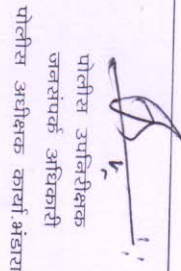 पोलीस उपनिरीक्षक
जनसंपर्क अधिकारी
पोलीस अधीक्षक कार्या.भंडारा